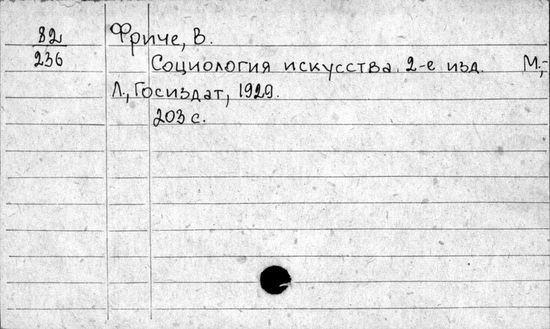 82 Фриче, В.
236 Социология искусства. 2-е изд. М.,-
Л., Госиздат, 1929.
203 с.